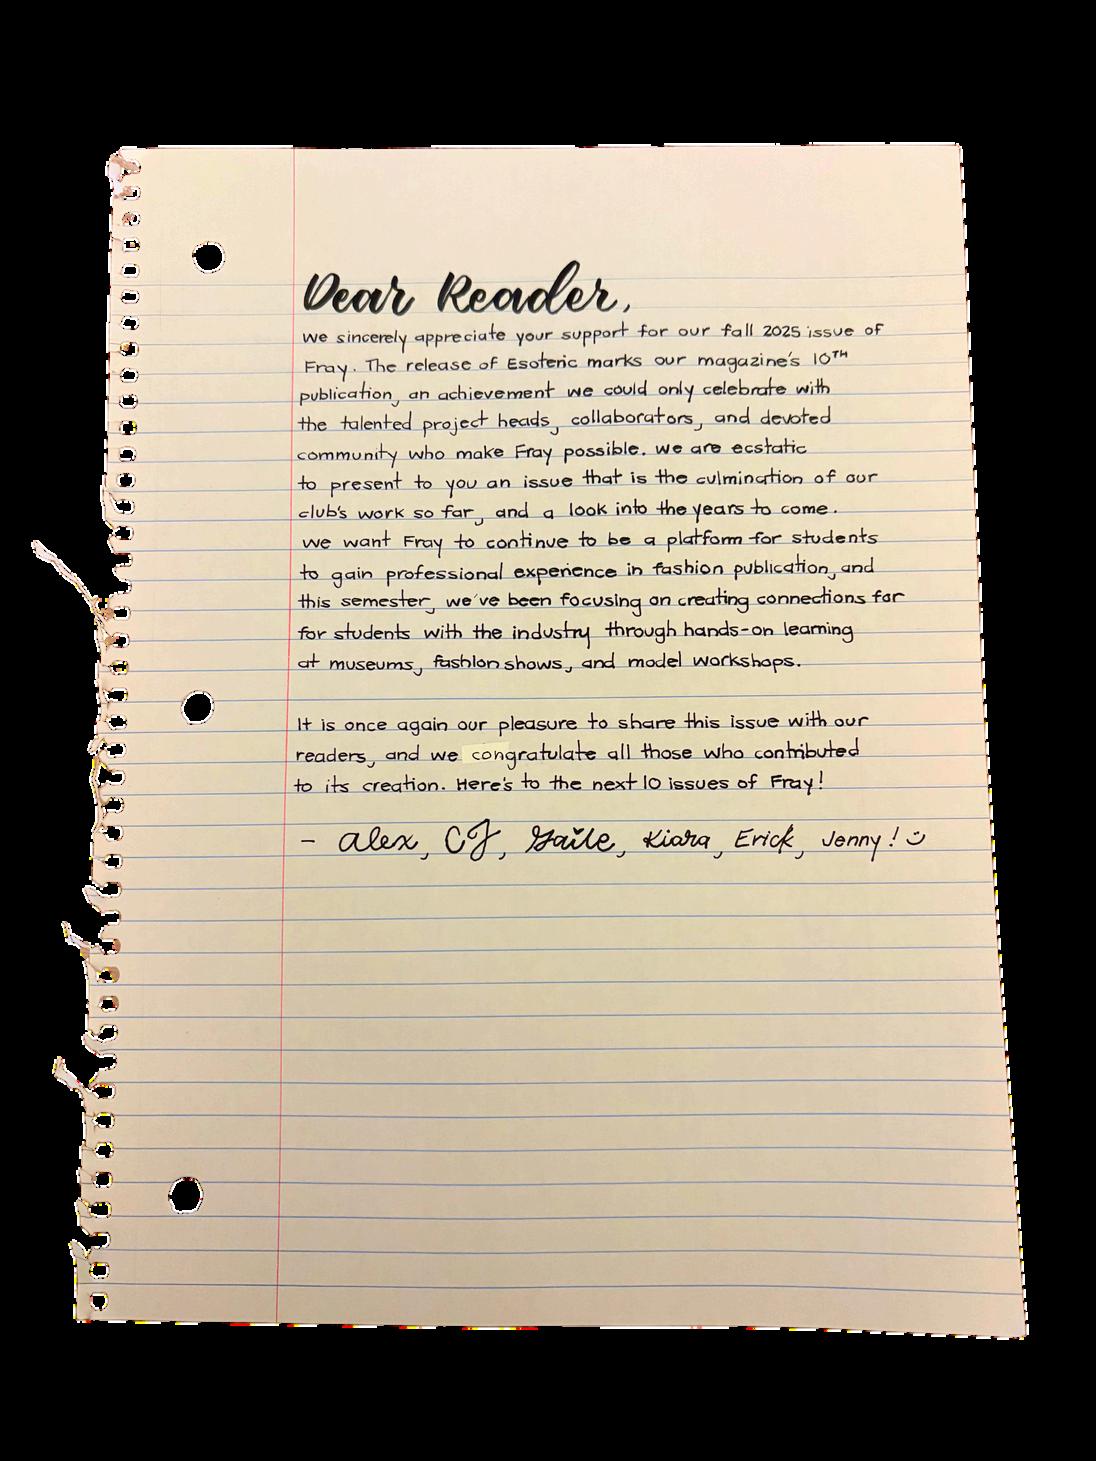 Dear Reader,
We sincerely appreciate your support for our fall 2025 issue of
Fray. The release of Esoteric marks our magazine's 10TH
publication, an achievement we could only celebrate with
the talented project heads, collaborators, and devoted
community who make Fray possible. We are ecstatic
to present to you an issue that is the culmination of our
club's work so far, and a look into the years to come.
We want Fray to continue to be a platform for students
to gain professional experience in fashion publication, and
this semester, we've been focusing on creating connections for
for students with the industry through hands-on learning
at museums, fashion shows, and model workshops.
It is once again our pleasure to share this issue with our
readers, and we congratulate all those who contributed
to its creation. Here's to the next 10 issues of Fray!
- Alex, CJ, Gaile, Kiara, Erick, Jenny! :)